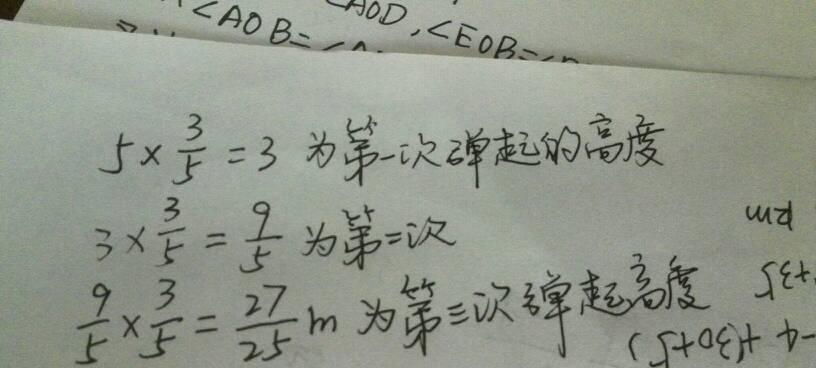 <AOB=
<AOD, <EOB=
5×3/5=3 为第一次弹起的高度
3×3/5=9/5 为第二次
9/5×3/5=27/25m 为第三次弹起高度